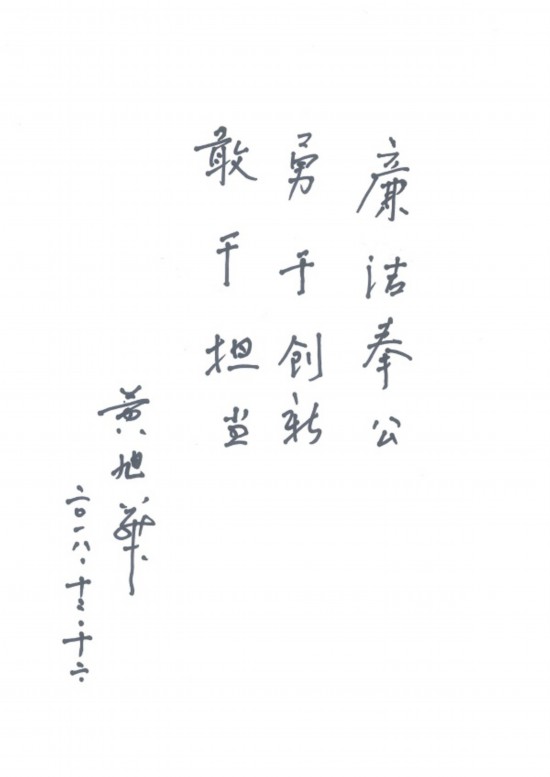 廉洁奉公
勇于创新
敢于担当
黄旭华
二〇一八.十二.十六